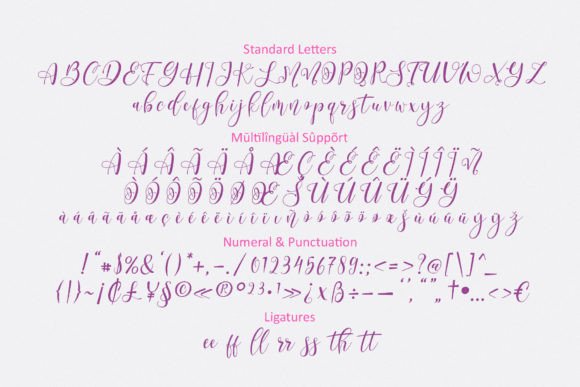 Standard Letters
ABCDEFGHIJKLMNOPQRSTUVWXYZ
abcdefghijklmnopqrstuvwxyz
Mültîlîngüàl Sûppõrt
ÀÁÂÃÄÅÆÇÈÉÊËÌÍÎÏÑ
ÒÓÔÕÖØŒŠÙÚÛÜÝŸ
Numeral & Punctuation
!"#$%&'()*+,-./0123456789:;<=>?@[\]^_
{|}~¡¢£¥§©«®°²³·¹»¿×ß÷–—‘’,“”„†•…<>€
Ligatures
ee ff ll rr ss th tt